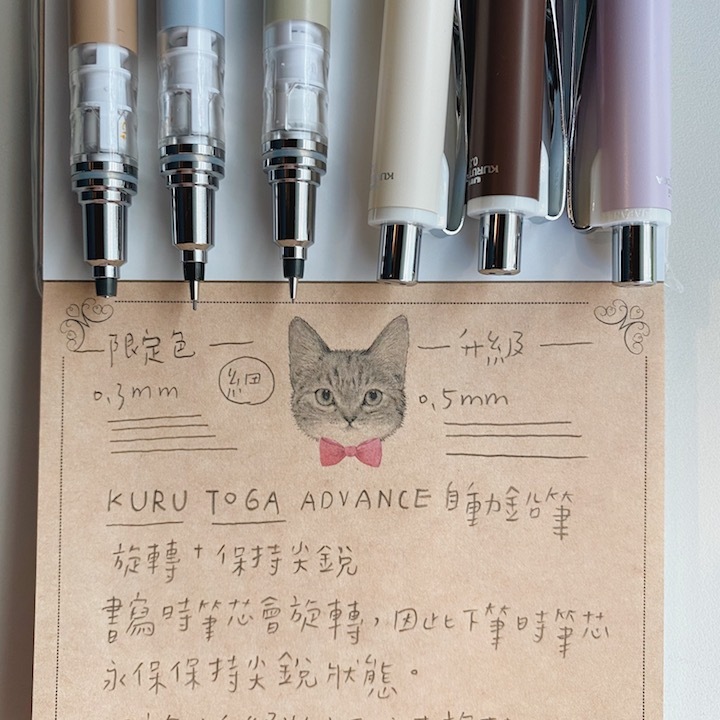 KURUTOGA
0.
限定色 升級
0.3mm 細 0.5mm
KURU TOGA ADVANCE 自動鉛筆
旋轉+保持尖銳
書寫時筆芯會旋轉，因此下筆時筆芯
永保保持尖銳狀態。